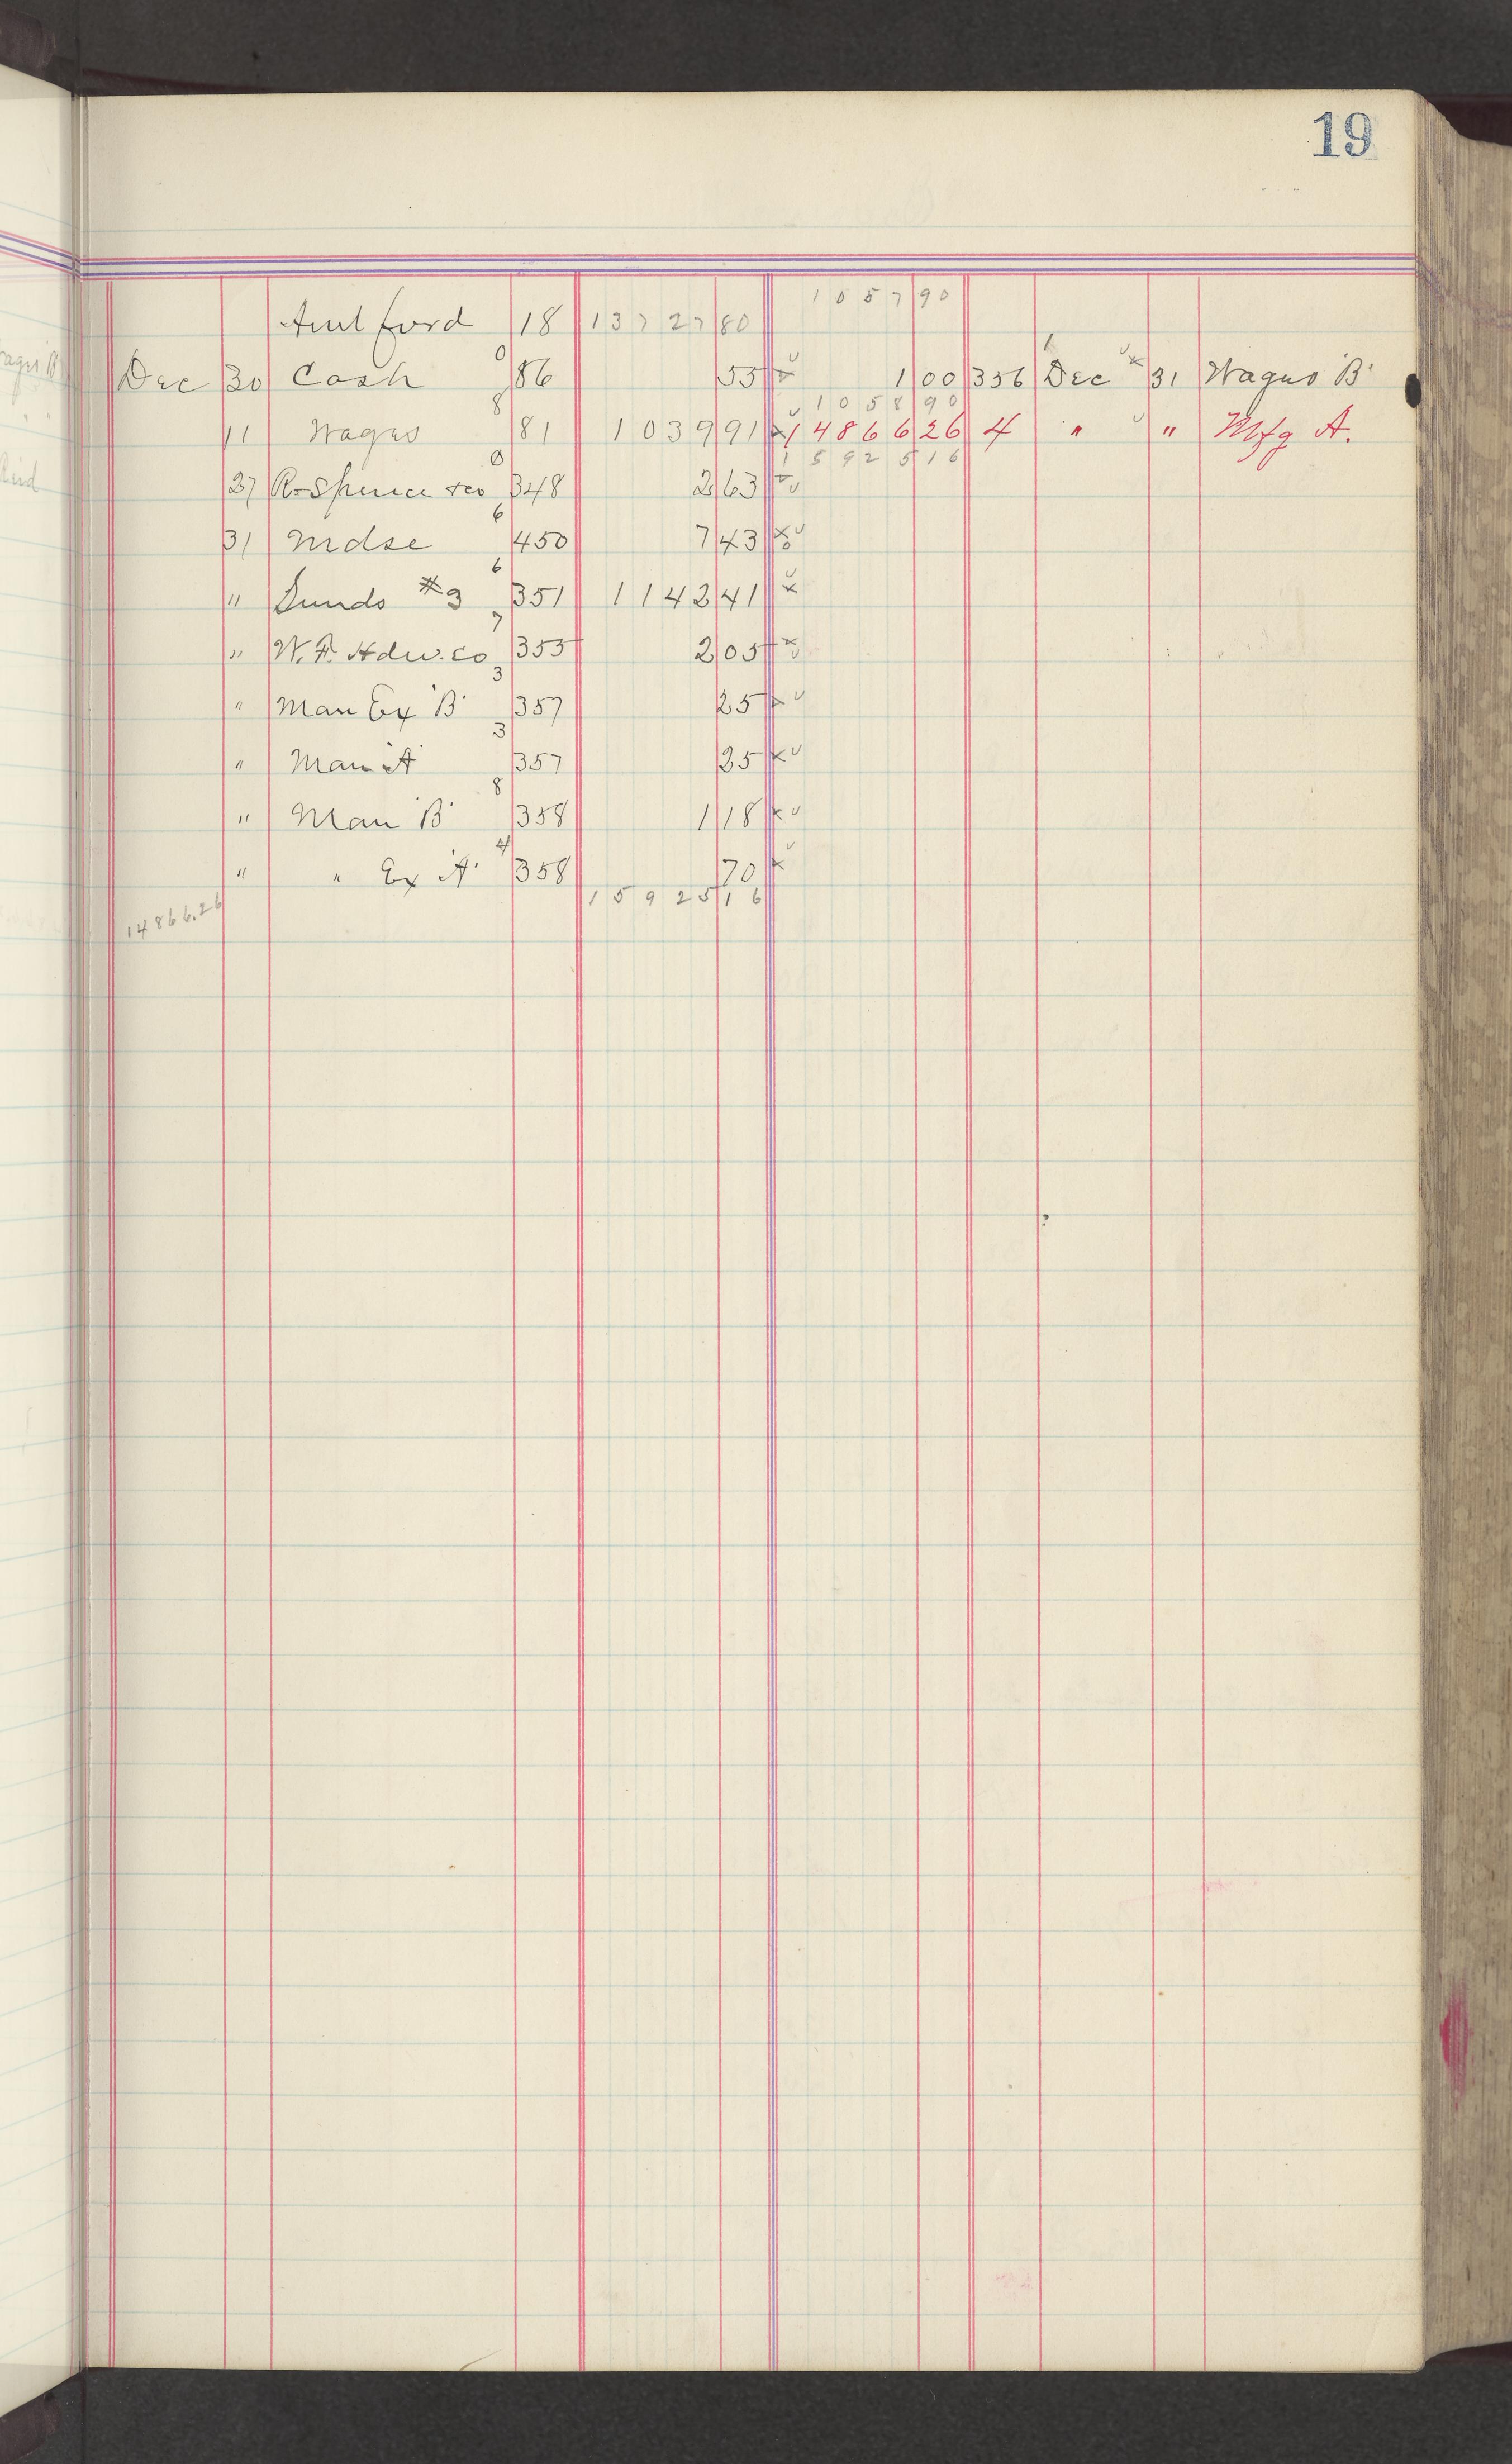 19
Amt ford 18 13727 80 1057 90
Dec 30 Cash 86 55 1 00 356 Dec 31 Wages "B"
1058 90
11 Wages 81 1039 91 14866 26 4 " " Mfg A.
15925 16
27 R. Spence & Co 348 2 63
31 Mdse 450 7 43
" Sunds #3 351 1142 41
" W. F. Hdw. Co 353 2 05
" Man Ex "B" 357 25
" Man "A" 357 25
" Man "B" 358 1 18
" " Ex "A" 358 70
15925 16
14866.26